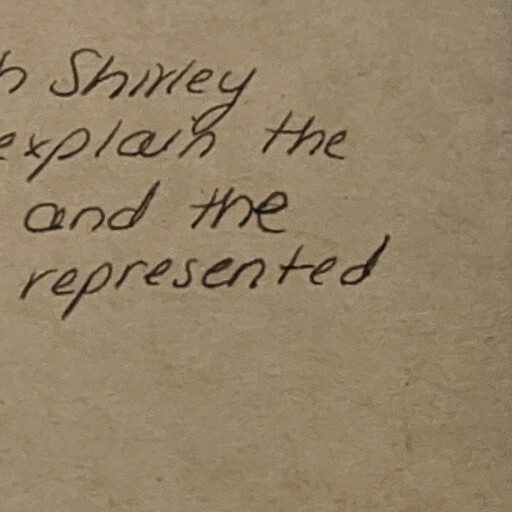 h Shirley
explain the
and the
represented